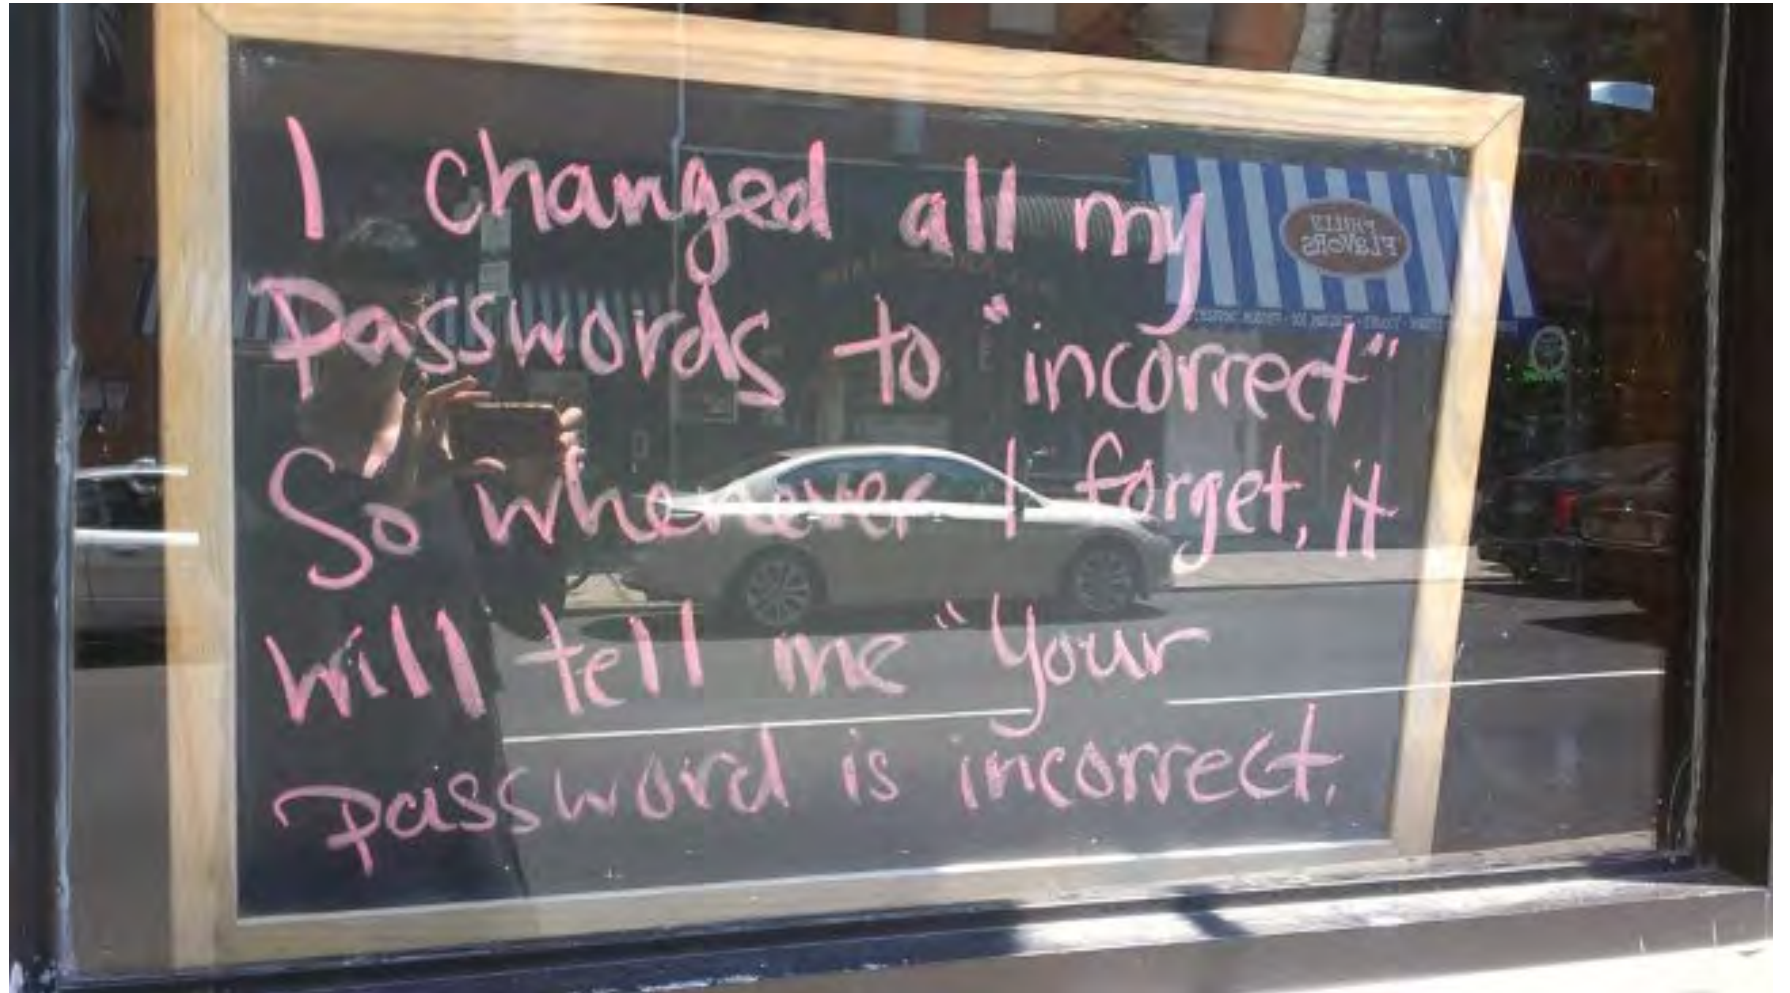 I changed all my
Passwords to "incorrect"
So whenever I forget, it
will tell me "Your
password is incorrect.
PHILLY
FLAVORS